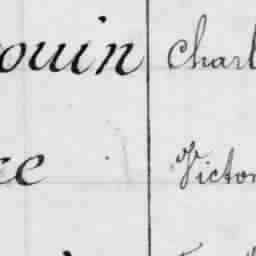 ouin Charl
ce Victor